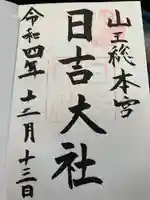 山王総本宮
日吉大社
令和四年十二月十三日